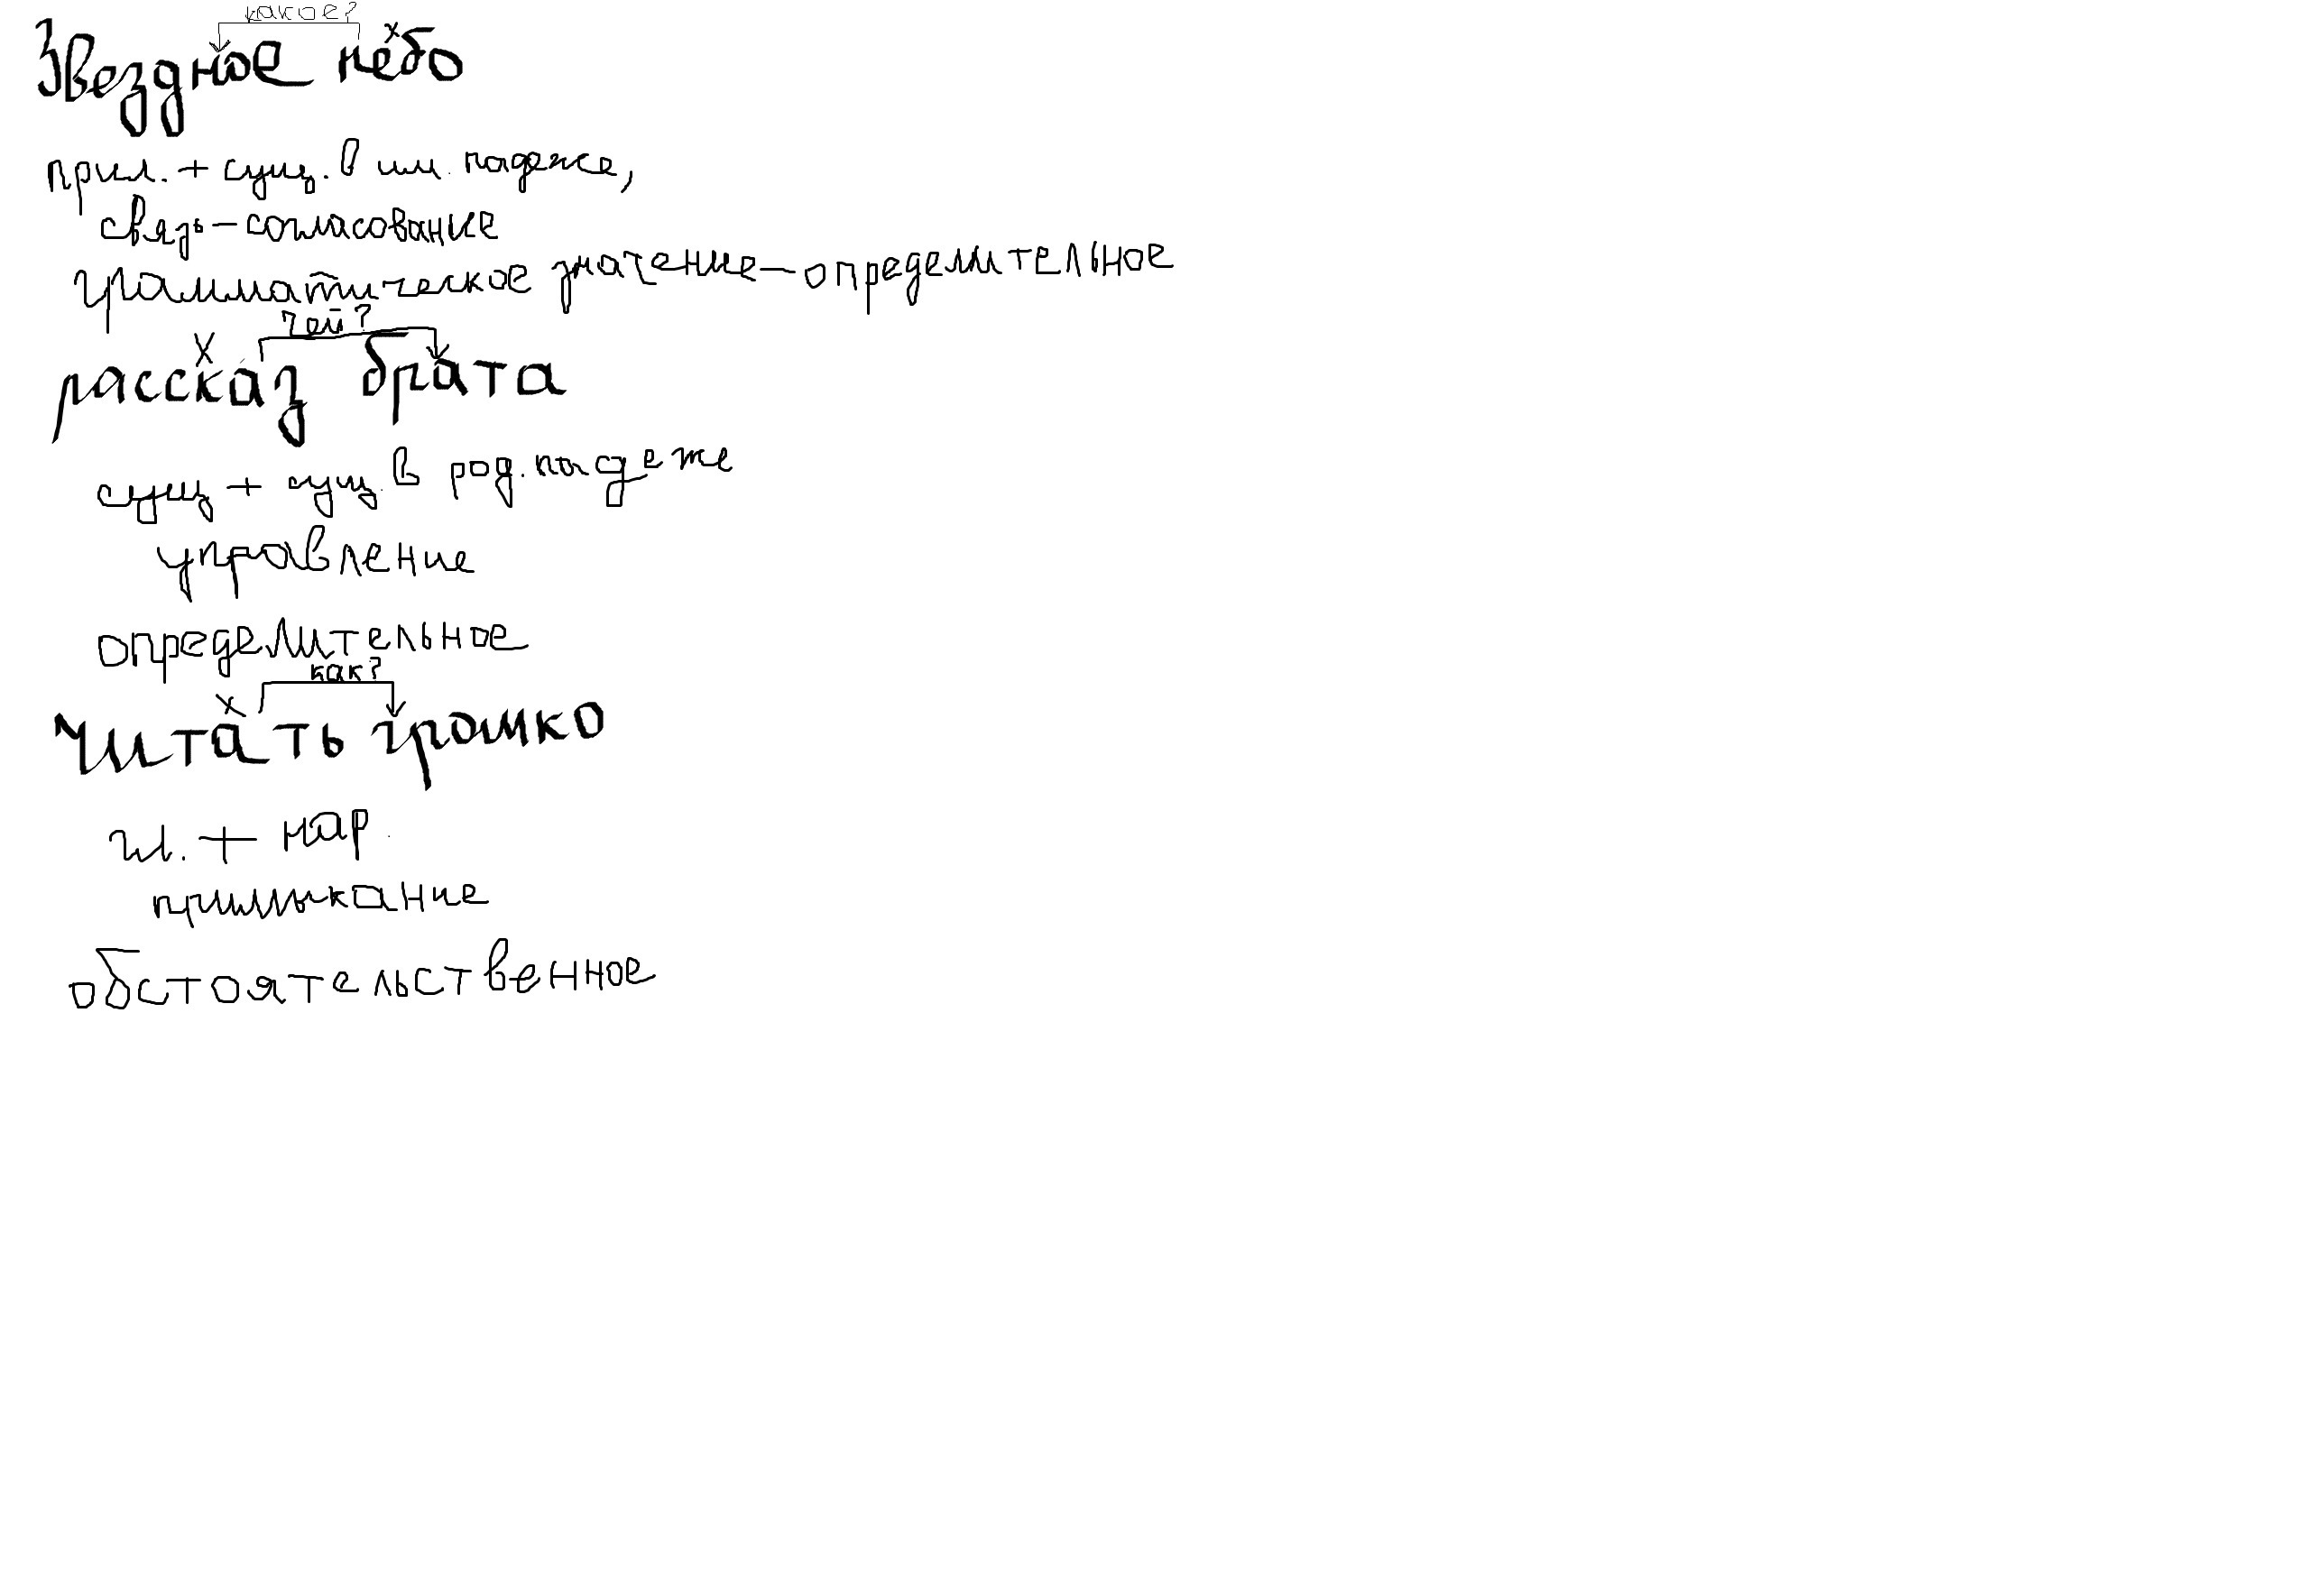 какое?
Звездное небо
прил. + сущ. в им. падеже,
связь - согласование
грамматическое значение - определительное
чей?
х
рассказ брата
сущ + сущ. в род. падеже
управление
определительное
как?
х
Читать громко
гл. + нар.
примыкание
обстоятельственное